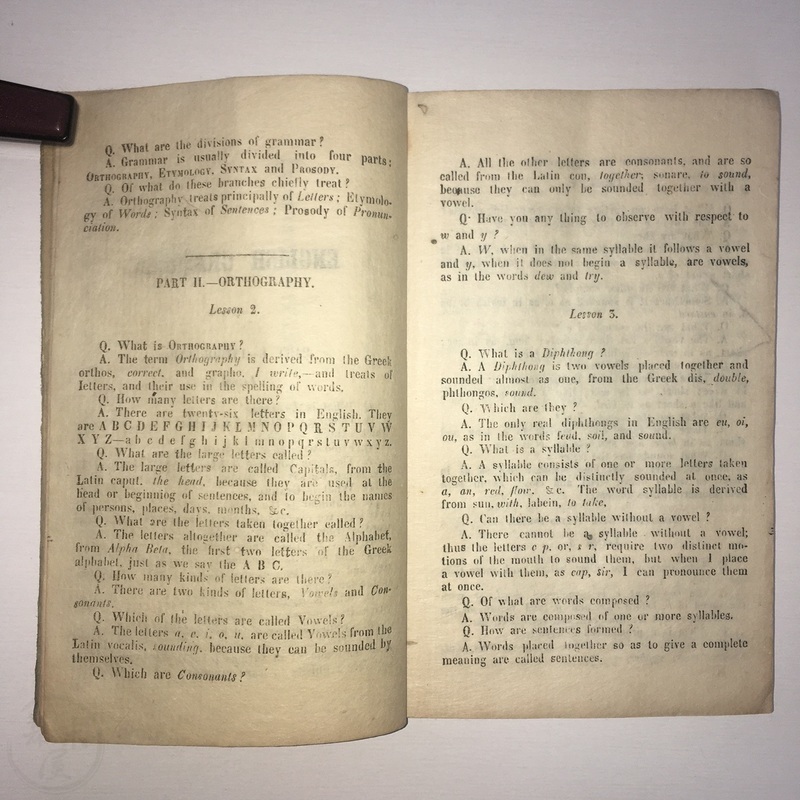 Q. What are the divisions of grammar?
A. Grammar is usually divided into four parts:
ORTHOGRAPHY, ETYMOLOGY, SYNTAX and PROSODY.
Q. Of what do these branches chiefly treat?
A. Orthography treats principally of Letters; Etymolo-
gy of Words; Syntax of Sentences; Prosody of Pronun-
ciation.
PART II.—ORTHOGRAPHY.
Lesson 2.
Q. What is ORTHOGRAPHY?
A. The term Orthography is derived from the Greek
orthos, correct, and grapho, I write,—and treats of
letters, and their use in the spelling of words.
Q. How many letters are there?
A. There are twenty-six letters in English. They
are A B C D E F G H I J K L M N O P Q R S T U V W
X Y Z—a b c d e f g h i j k l m n o p q r s t u v w x y z.
Q. What are the large letters called?
A. The large letters are called Capitals, from the
Latin caput, the head, because they are used at the
head or beginniog of sentences, and to begin the names
of persons, places, days, months, &c.
Q. What are the letters taken together called?
A. The letters altogether are called the Alphabet,
from Alpha Beta, the first two letters of the Greek
alphabet, just as we say the A B C.
Q. How many kinds of letters are there?
A. There are two kinds of letters, Vowels and Con-
sonants.
Q. Which of the letters are called Vowels?
A. The letters a, e, i, o, u, are called Vowels from the
Latin vocalis, sounding, because they can be sounded by
themselves.
Q. Which are Consonants?
A. All the other letters are consonants, and are so
called from the Latin con, together, sonare, to sound,
because they can only be sounded together with a
vowel.
Q· Have you any thing to observe with respect to
w and y?
A. W, when in the same syllable it follows a vowel
and y, when it does not begin a syllable, are vowels,
as in the words dew and try.
Lesson 3.
Q. What is a Diphthong?
A. A Diphthong is two vowels placed together and
sounded almost as one, from the Greek dis, double,
phthongos, sound.
Q. Which are they?
A. The only real diphthongs in English are eu, oi,
ou, as in the words feud, soil, and sound.
Q. What is a syllable?
A. A syllable consists of one or more letters taken
together, which can be distinctly sounded at once, as
a, an, red, flow, &c. The word syllable is derived
from sun, with, labein, to take,
Q. Can there be a syllable without a vowel?
A. There cannot be a syllable without a vowel;
thus the letters c p, or, s r, require two distinct mo-
tions of the mouth to sound them, but when I place
a vowel with them, as cap, sir, I can pronounce them
at once.
Q. Of what are words composed?
A. Words are composed of one or more syllables.
Q. How are sentences formed?
A. Words placed together so as to give a complete
meaning are called sentences.